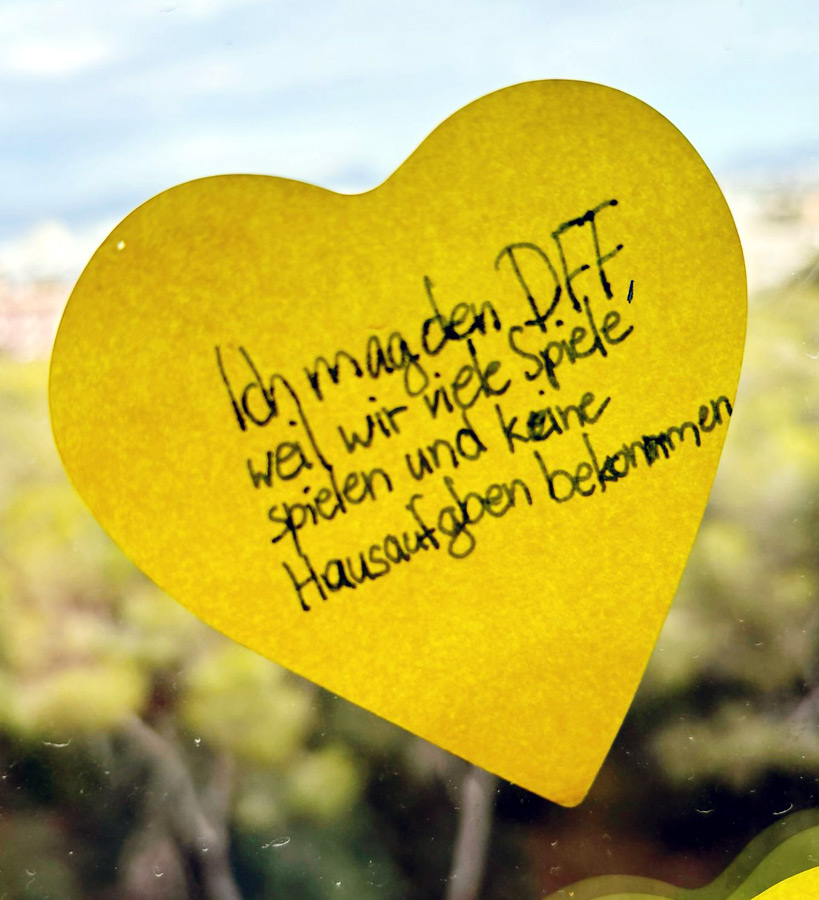 Ich mag den DFF,
weil wir viele Spiele
spielen und keine
Hausaufgben bekommen